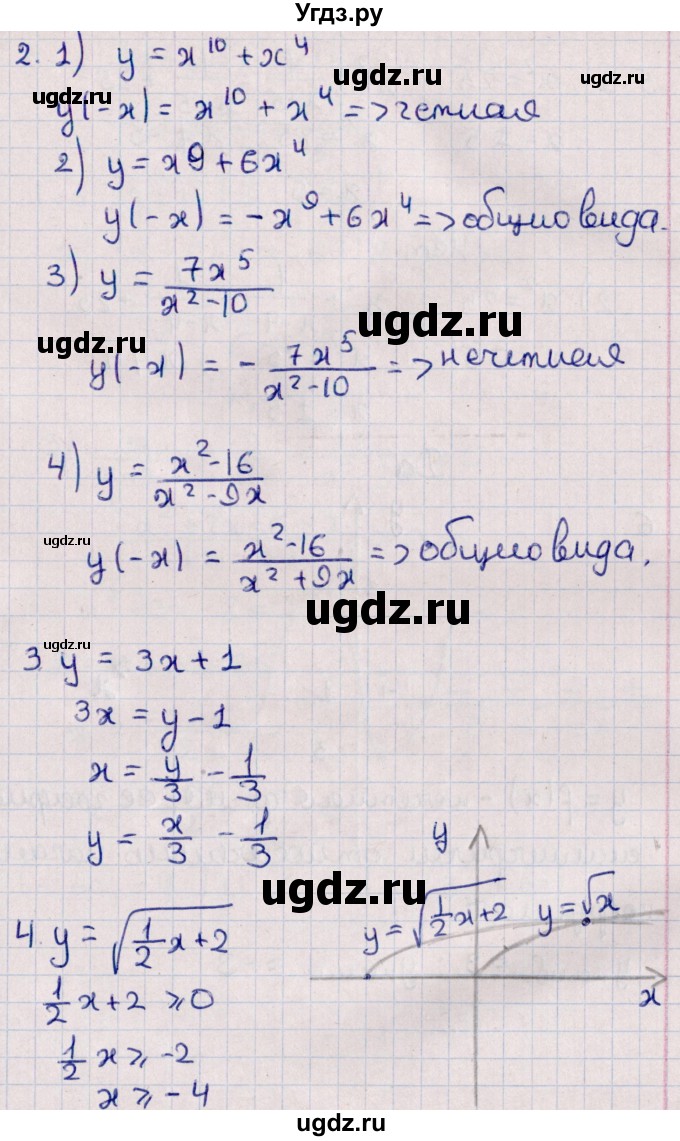 Угдз.ру
2. 1) y = x¹⁰ + x⁴
ugdz.ru ugdz.ru
y(-x) = x¹⁰ + x⁴ => четная
2) y = x9 + 6x⁴
y(-x) = -x⁹ + 6x⁴ => общио вида.
3) y = 7x⁵/(x²-10)
ugdz.ru
ugdz.ru
y(-x) = - 7x⁵/(x²-10) => нечетная
4) y = (x²-16)/(x²-9x)
ugdz.ru
y(-x) = (x²-16)/(x²+9x) => общио вида.
ugdz.ru
ugdz.ru
3 y = 3x + 1
3x = y - 1
x = y/3 - 1/3
y = x/3 - 1/3
y
ugdz.ru
4. y = √(1/2x+2)
y = √(1/2x+2) y = √x
x
1/2x + 2 ⩾ 0
1/2x ⩾ -2
x ⩾ -4
ugdz.ru